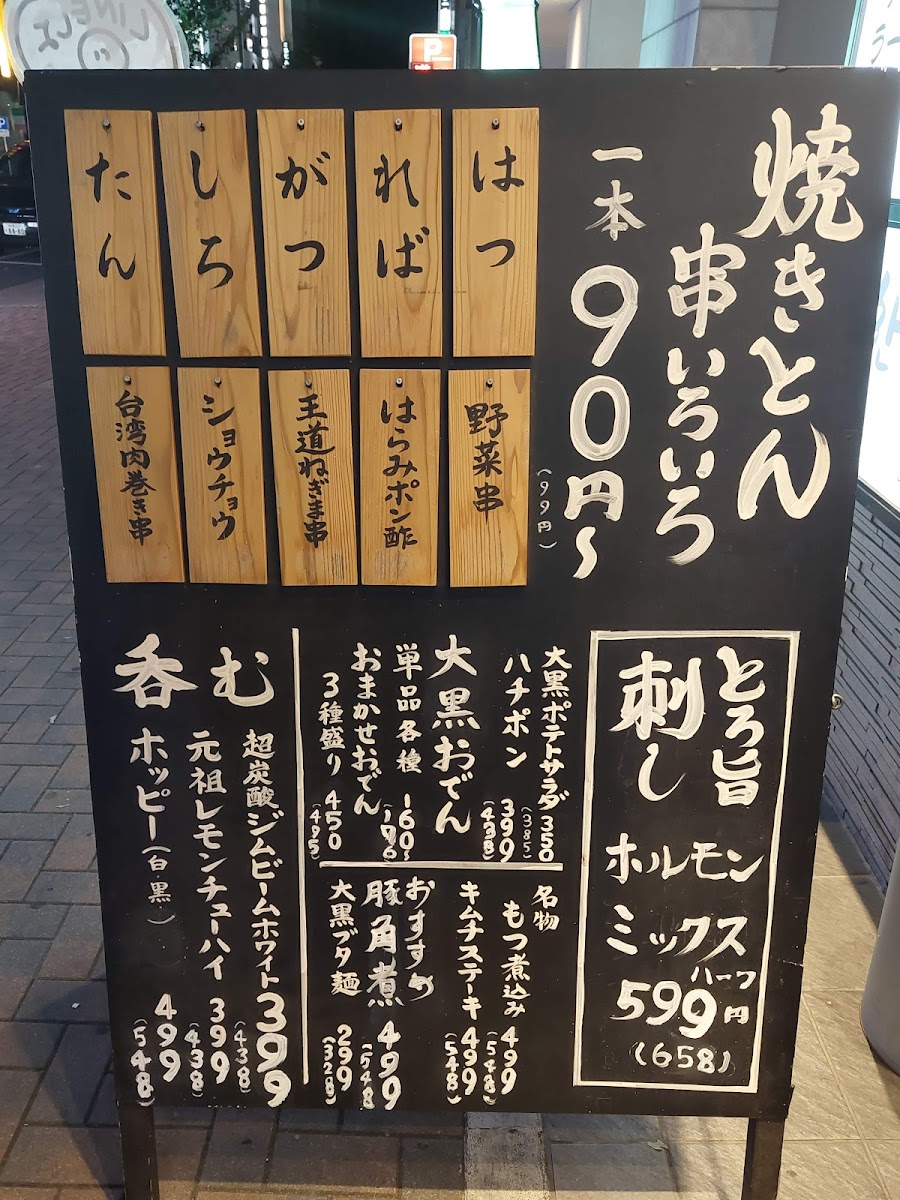 焼きとん
串いろいろ
一本90円〜
(99円)
はつ
れば
がつ
しろ
たん
野菜串
はらみポン酢
王道ねぎま串
ショウチョウ
台湾肉巻き串
とろ旨
刺し
ホルモン
ミックス
ハーフ
599円
(658)
大黒ポテトサラダ 350
(385)
ハチポン 399
(438)
大黒おでん
単品各種 160〜
おまかせおでん
3種盛り 450
(495)
名物
もつ煮込み 499
(548)
キムチステーキ 499
(548)
おすすめ
豚角煮 499
(548)
大黒ブタ麺 299
(328)
呑む
超炭酸ジムビームホワイト 399
(438)
元祖レモンチューハイ 399
(438)
ホッピー(白・黒) 499
(548)
P